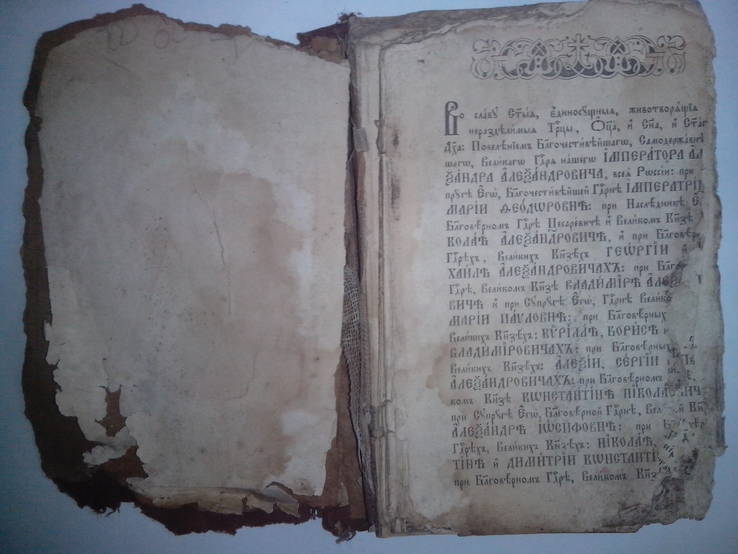 Во славу Ст҃ыѧ, є҆диносущныѧ, животворѧщіѧ
нераздѣлимыѧ Трⷪ҇цы, Ѻ҆ц҃а, и҆ Сн҃а, и҆ Ст҃аг
Дх҃а: Повелѣніемъ Бл҃гочестивѣйшагѡ, Самодержавнѣ
шагѡ, Великагѡ Гдⷭ҇рѧ нашегѡ ІМПЕРАТОРА АЛ
ЕѮАНДРА АЛЕѮАНДРОВИЧА, всеѧ Рѡссіи: при
пругѣ Є҆гѡ, Бл҃гочестивѣйшей Гдⷭ҇рнѣ ІМПЕРАТРІ
МАРІИ ѲЕѠДѠРОВНѢ: при Наслѣдникѣ Є
Бл҃говѣрномъ Гдⷭ҇рѣ Цесаревичѣ и҆ Великомъ Кнѧ҃зѣ
КОЛАѢ АЛЕѮАНДРОВИЧѢ, и҆ при Бл҃говѣр
Гдⷭ҇рѣхъ, Великихъ Кнѧ҃зѣхъ ГЕѠРГІИ
ХАИЛѢ АЛЕѮАНДРОВИЧАХЪ: при Бл҃гов
Гдⷭ҇рѣ, Великомъ Кнѧ҃зѣ ВЛАДИМІРѢ АЛЕѮ
ВИЧѢ и҆ при Сꙋпрꙋгѣ Є҆гѡ̀, Гдⷭ҇рнѣ Велико
МАРІИ ПАѴЛОВНѢ: при Бл҃говѣрных
Великихъ Кнѧ҃зѣхъ: КѴРІЛЛѢ, БОРИСѢ и҆
ВЛАДИМІРОВИЧАХЪ: при Бл҃говѣрных
Великихъ Кнѧ҃зѣхъ: АЛЕѮІИ, СЕРГІИ
АЛЕѮАНДРОВИЧАХЪ: при Бл҃говѣрномъ
комъ Кнѧ҃зѣ КѠНСТАНТІНѢ НІКОЛАЕ ИЧ
при Сꙋпрꙋгѣ Є҆гѡ̀, Бл҃говѣрной Гдⷭ҇рнѣ, Вел
АЛЕѮАНДРѢ ІѠСИФОВНѢ: при
Гдⷭ҇рѣхъ, Великихъ Кнѧ҃зѣхъ: НІКОЛАѢ,
ТІНѢ и҆ ДИМИТРІИ КѠНСТАНТІ
при Бл҃говѣрномъ Гдⷭ҇рѣ, Великомъ Кнѧ҃з